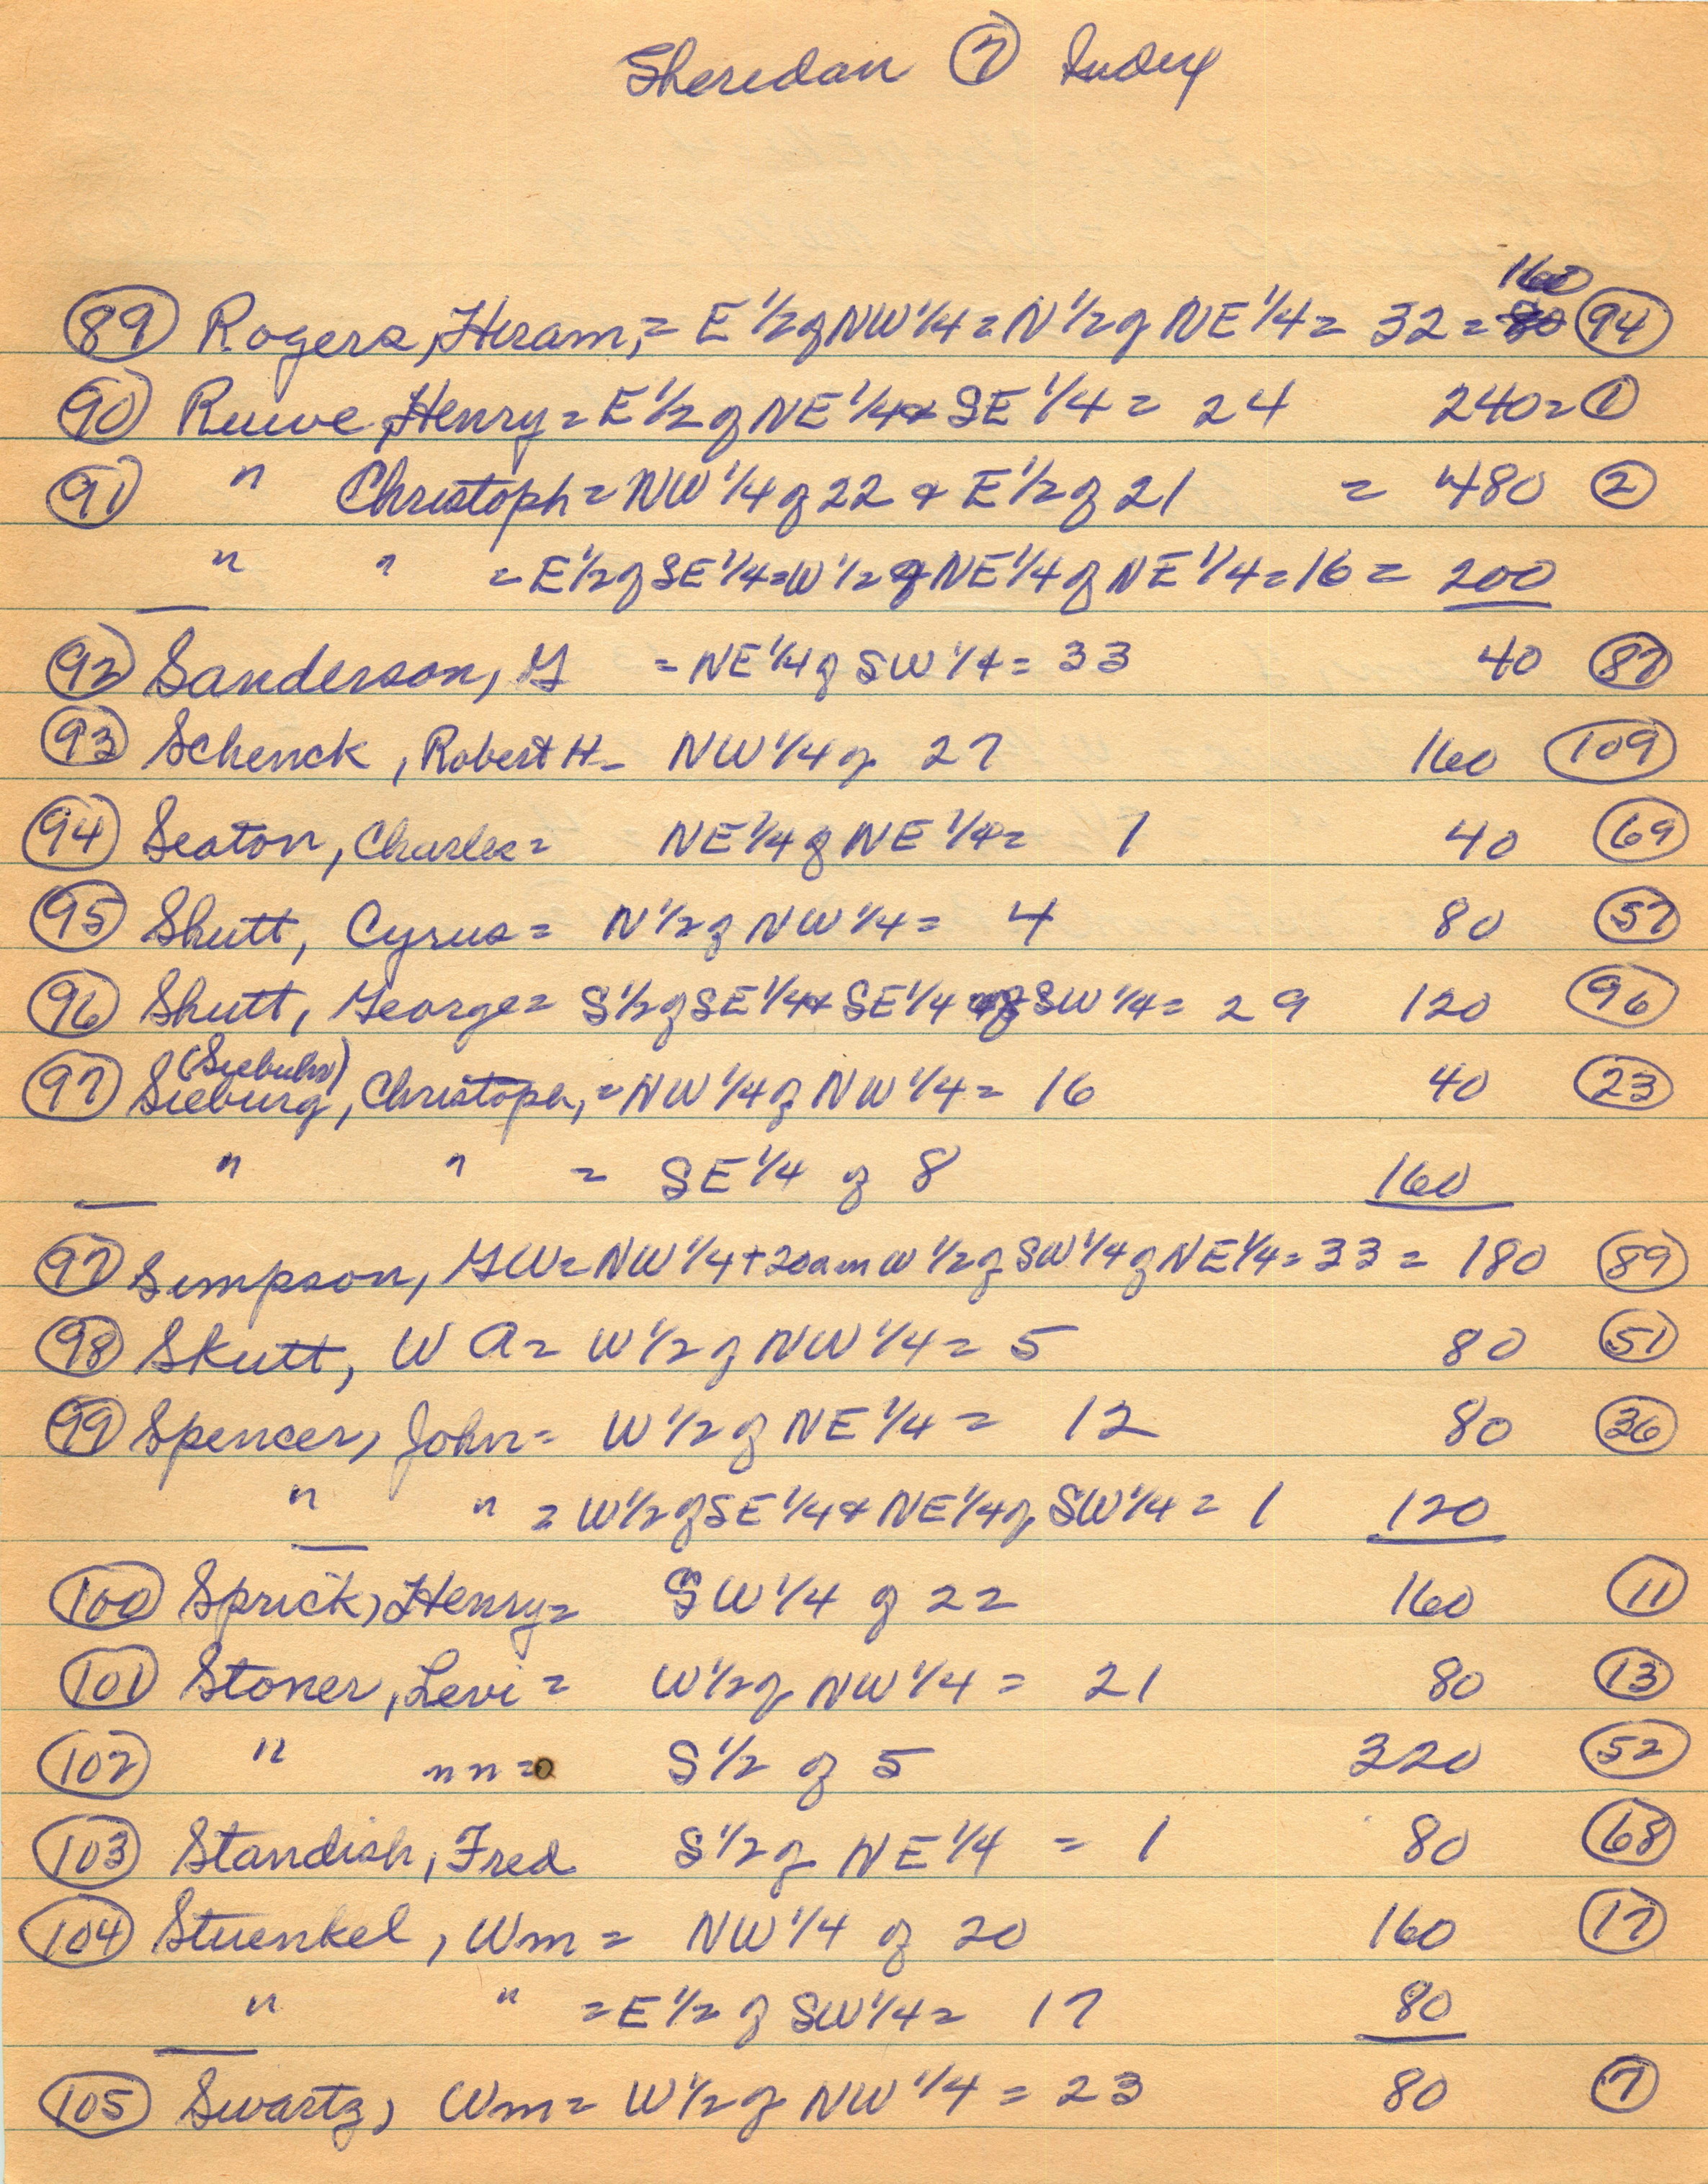 Sheridan 7 Index
160
89 Rogers, Hiram, = E 1/2 of NW 1/4 = N 1/2 of NE 1/4 = 32 = 80 94
90 Ruwe, Henry = E 1/2 of NE 1/4 & SE 1/4 = 24 240 = 1
91 " Christoph = NW 1/4 of 22 & E 1/2 of 21 = 480 2
" " = E 1/2 of SE 1/4 = W 1/2 & NE 1/4 of NE 1/4 = 16 = 200
92 Sanderson, G = NE 1/4 of SW 1/4 = 33 40 87
93 Schenck, Robert H - NW 1/4 of 27 160 109
94 Seaton, Charles = NE 1/4 of NE 1/4 = 1 40 69
95 Shutt, Cyrus = N 1/2 of NW 1/4 = 4 80 57
96 Shutt, George = S 1/2 of SE 1/4 & SE 1/4 of SW 1/4 = 29 120 96
(Siebuhr)
97 Sieburg, Christoph, = NW 1/4 of NW 1/4 = 16 40 23
" " = SE 1/4 of 8 160
97 Simpson, GW = NW 1/4 + 20a in W 1/2 of SW 1/4 of NE 1/4 = 33 = 180 89
98 Skutt, W A = W 1/2 of NW 1/4 = 5 80 51
99 Spencer, John = W 1/2 of NE 1/4 = 12 80 36
" " = W 1/2 of SE 1/4 & NE 1/4 of SW 1/4 = 1 120
100 Sprick, Henry = SW 1/4 of 22 160 11
101 Stoner, Levi = W 1/2 of NW 1/4 = 21 80 13
102 " " " = S 1/2 of 5 320 52
103 Standish, Fred S 1/2 of NE 1/4 = 1 80 68
104 Stuenkel, Wm = NW 1/4 of 20 160 17
" " = E 1/2 of SW 1/4 = 17 80
105 Swartz, Wm = W 1/2 of NW 1/4 = 23 80 7